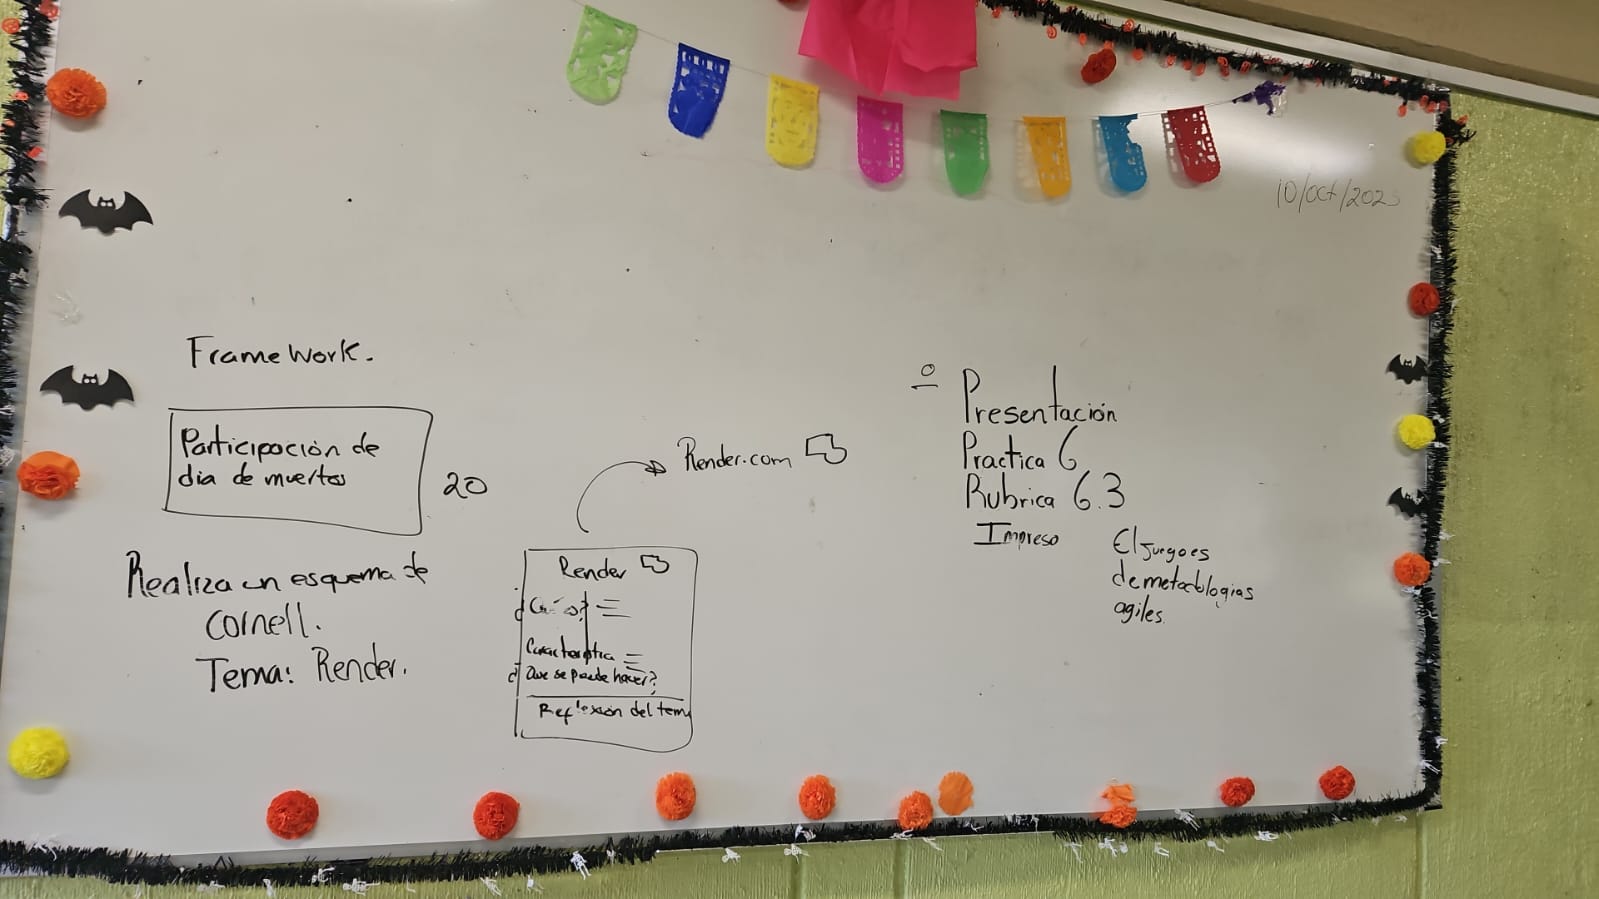 10/oct/202
FrameWork.
Participación de
dia de muertos
20
Realiza un esquema de
Cornell.
Tema: Render.
Render.com
Render
Caracteristica
¿Que se puede hacer?
Reflexión del tema
Presentación
Practica 6
Rubrica 6.3
Impreso
El juego es
de metodologias
agiles.